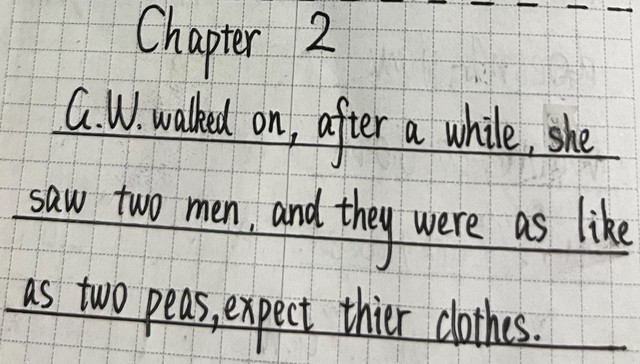 Chapter 2
G.W. walked on, after a while, she
saw two men, and they were as like
as two peas, expect thier clothes.